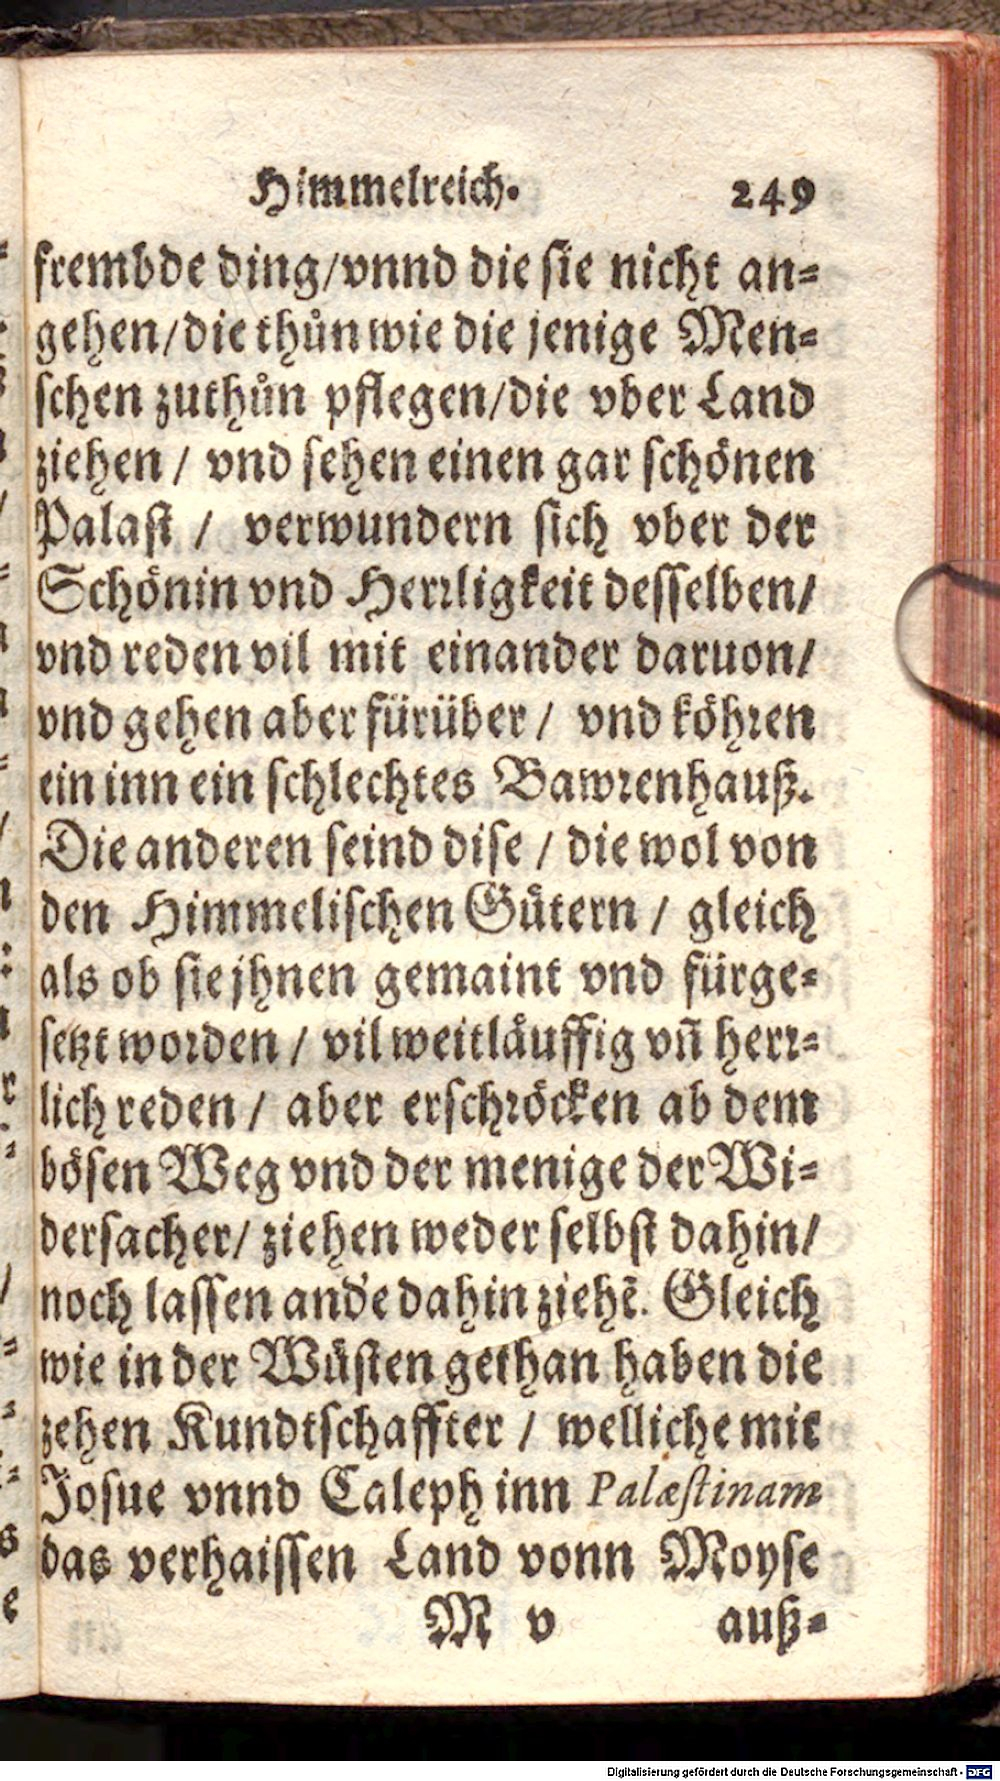 Himmelreich. 249
frembde ding/vnnd die sie nicht an-
gehen/die thůn wie die jenige Men-
schen zuthůn pflegen/die vber Land
ziehen / vnd sehen einen gar schönen
Palast / verwundern sich vber der
Schönin vnd Herrligkeit desselben/
vnd reden vil mit einander daruon/
vnd gehen aber fürüber / vnd köhren
ein inn ein schlechtes Bawrenhauß.
Die anderen seind dise / die wol von
den Himmelischen Gütern / gleich
als ob sie jhnen gemaint vnd fürge-
setzt worden / vil weitläuffig vñ herr-
lich reden / aber erschröcken ab dem
bösen Weg vnd der menige der Wi-
dersacher/ ziehen weder selbst dahin/
noch lassen and'e dahin ziehẽ. Gleich
wie in der Wüsten gethan haben die
zehen Kundtschaffter / welliche mit
Josue vnnd Caleph inn Palæstinam
das verhaissen Land vonn Moyse
M v auß-
Digitalisierung gefördert durch die Deutsche Forschungsgemeinschaft - DFG